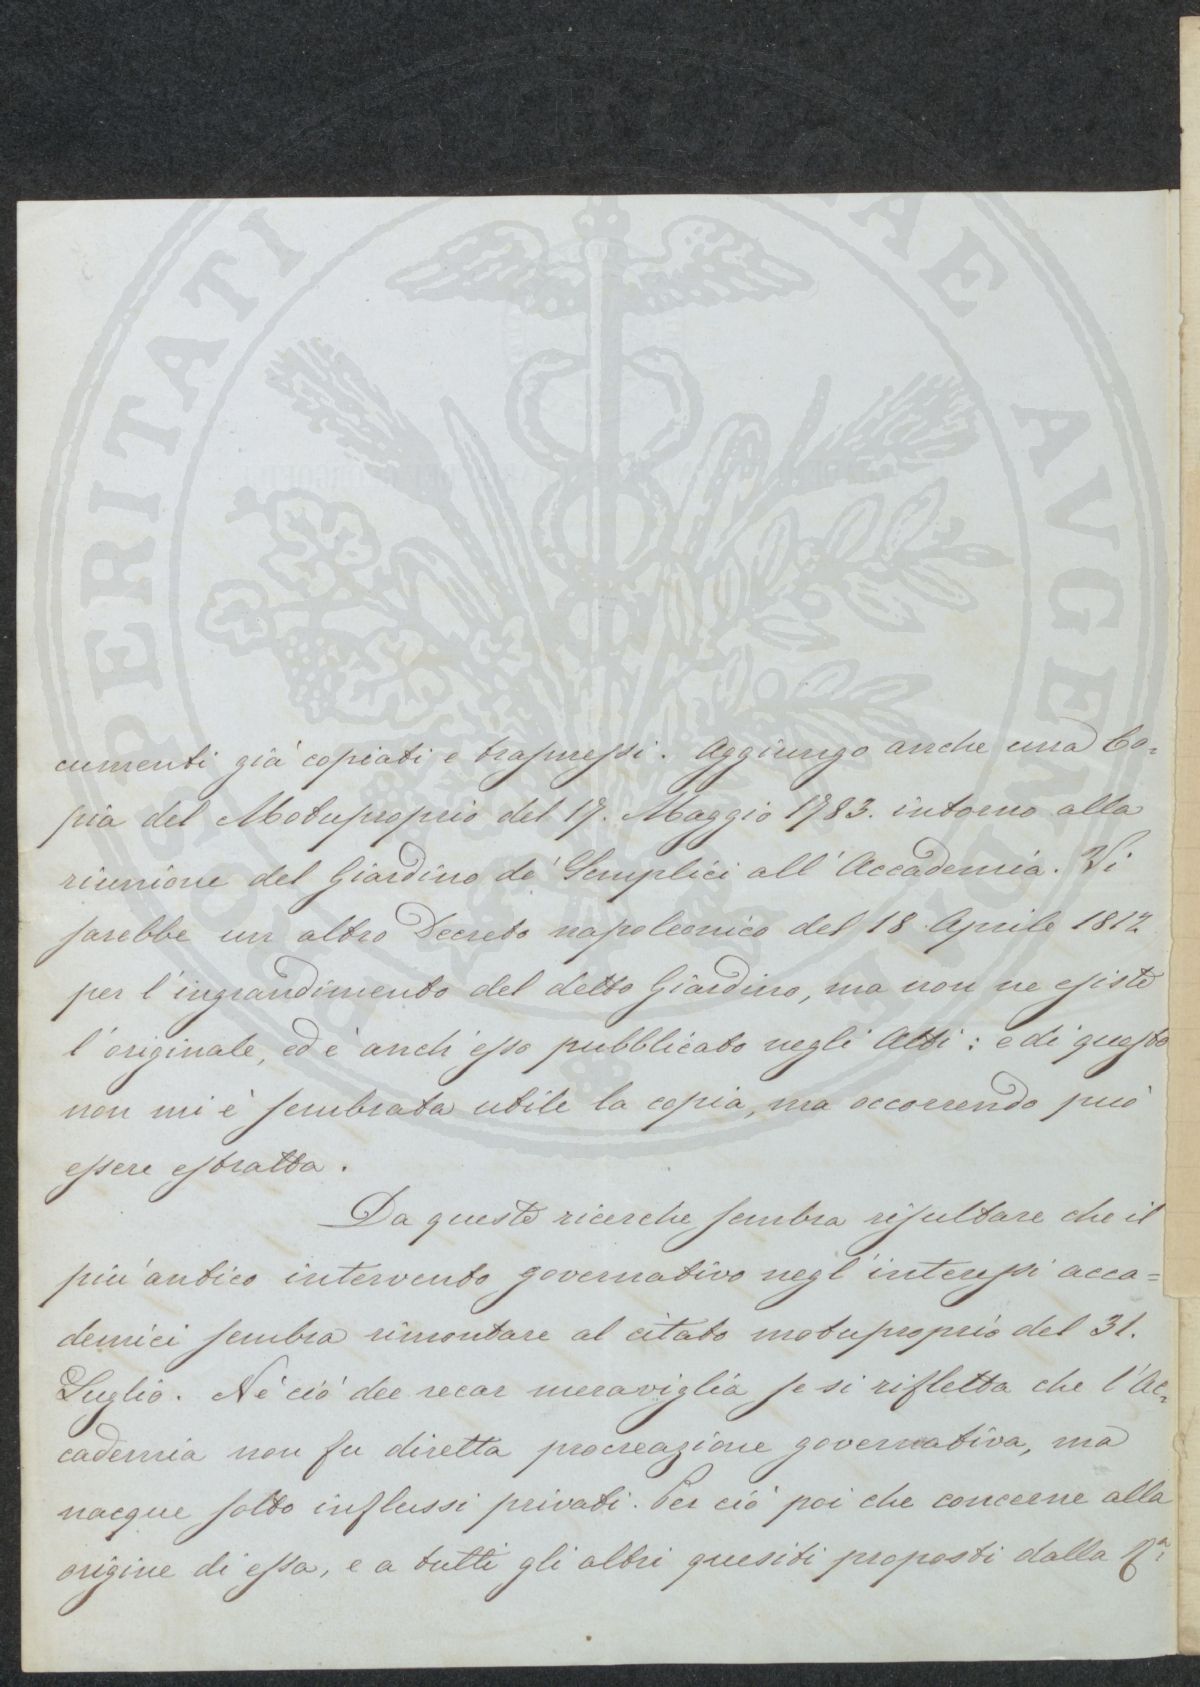 cumenti già copiati e trasmessi. Aggiungo anche una Co=
pia del Motuproprio del 17. Maggio 1783. intorno alla
riunione del Giardino de' Semplici all'Accademia. Vi
sarebbe un altro Decreto napoleonico del 18 Aprile 1812
per l'ingrandimento del detto Giardino, ma non ne esiste
l'originale, ed è anch'esso pubblicato negli Atti: e di questo
non mi è sembrata utile la copia, ma occorrendo può
essere estratta.
Da queste ricerche sembra risultare che il
più antico intervento governativo negl'interessi acca=
demici sembra rimontare al citato motuproprio del 31.
Luglio. Nè ciò dee recar meraviglia se si rifletta che l'Ac=
cademia non fu diretta procreazione governativa, ma
nacque sotto influssi privati. Per ciò poi che concerne alla
origine di essa, e a tutti gli altri quesiti proposti dalla